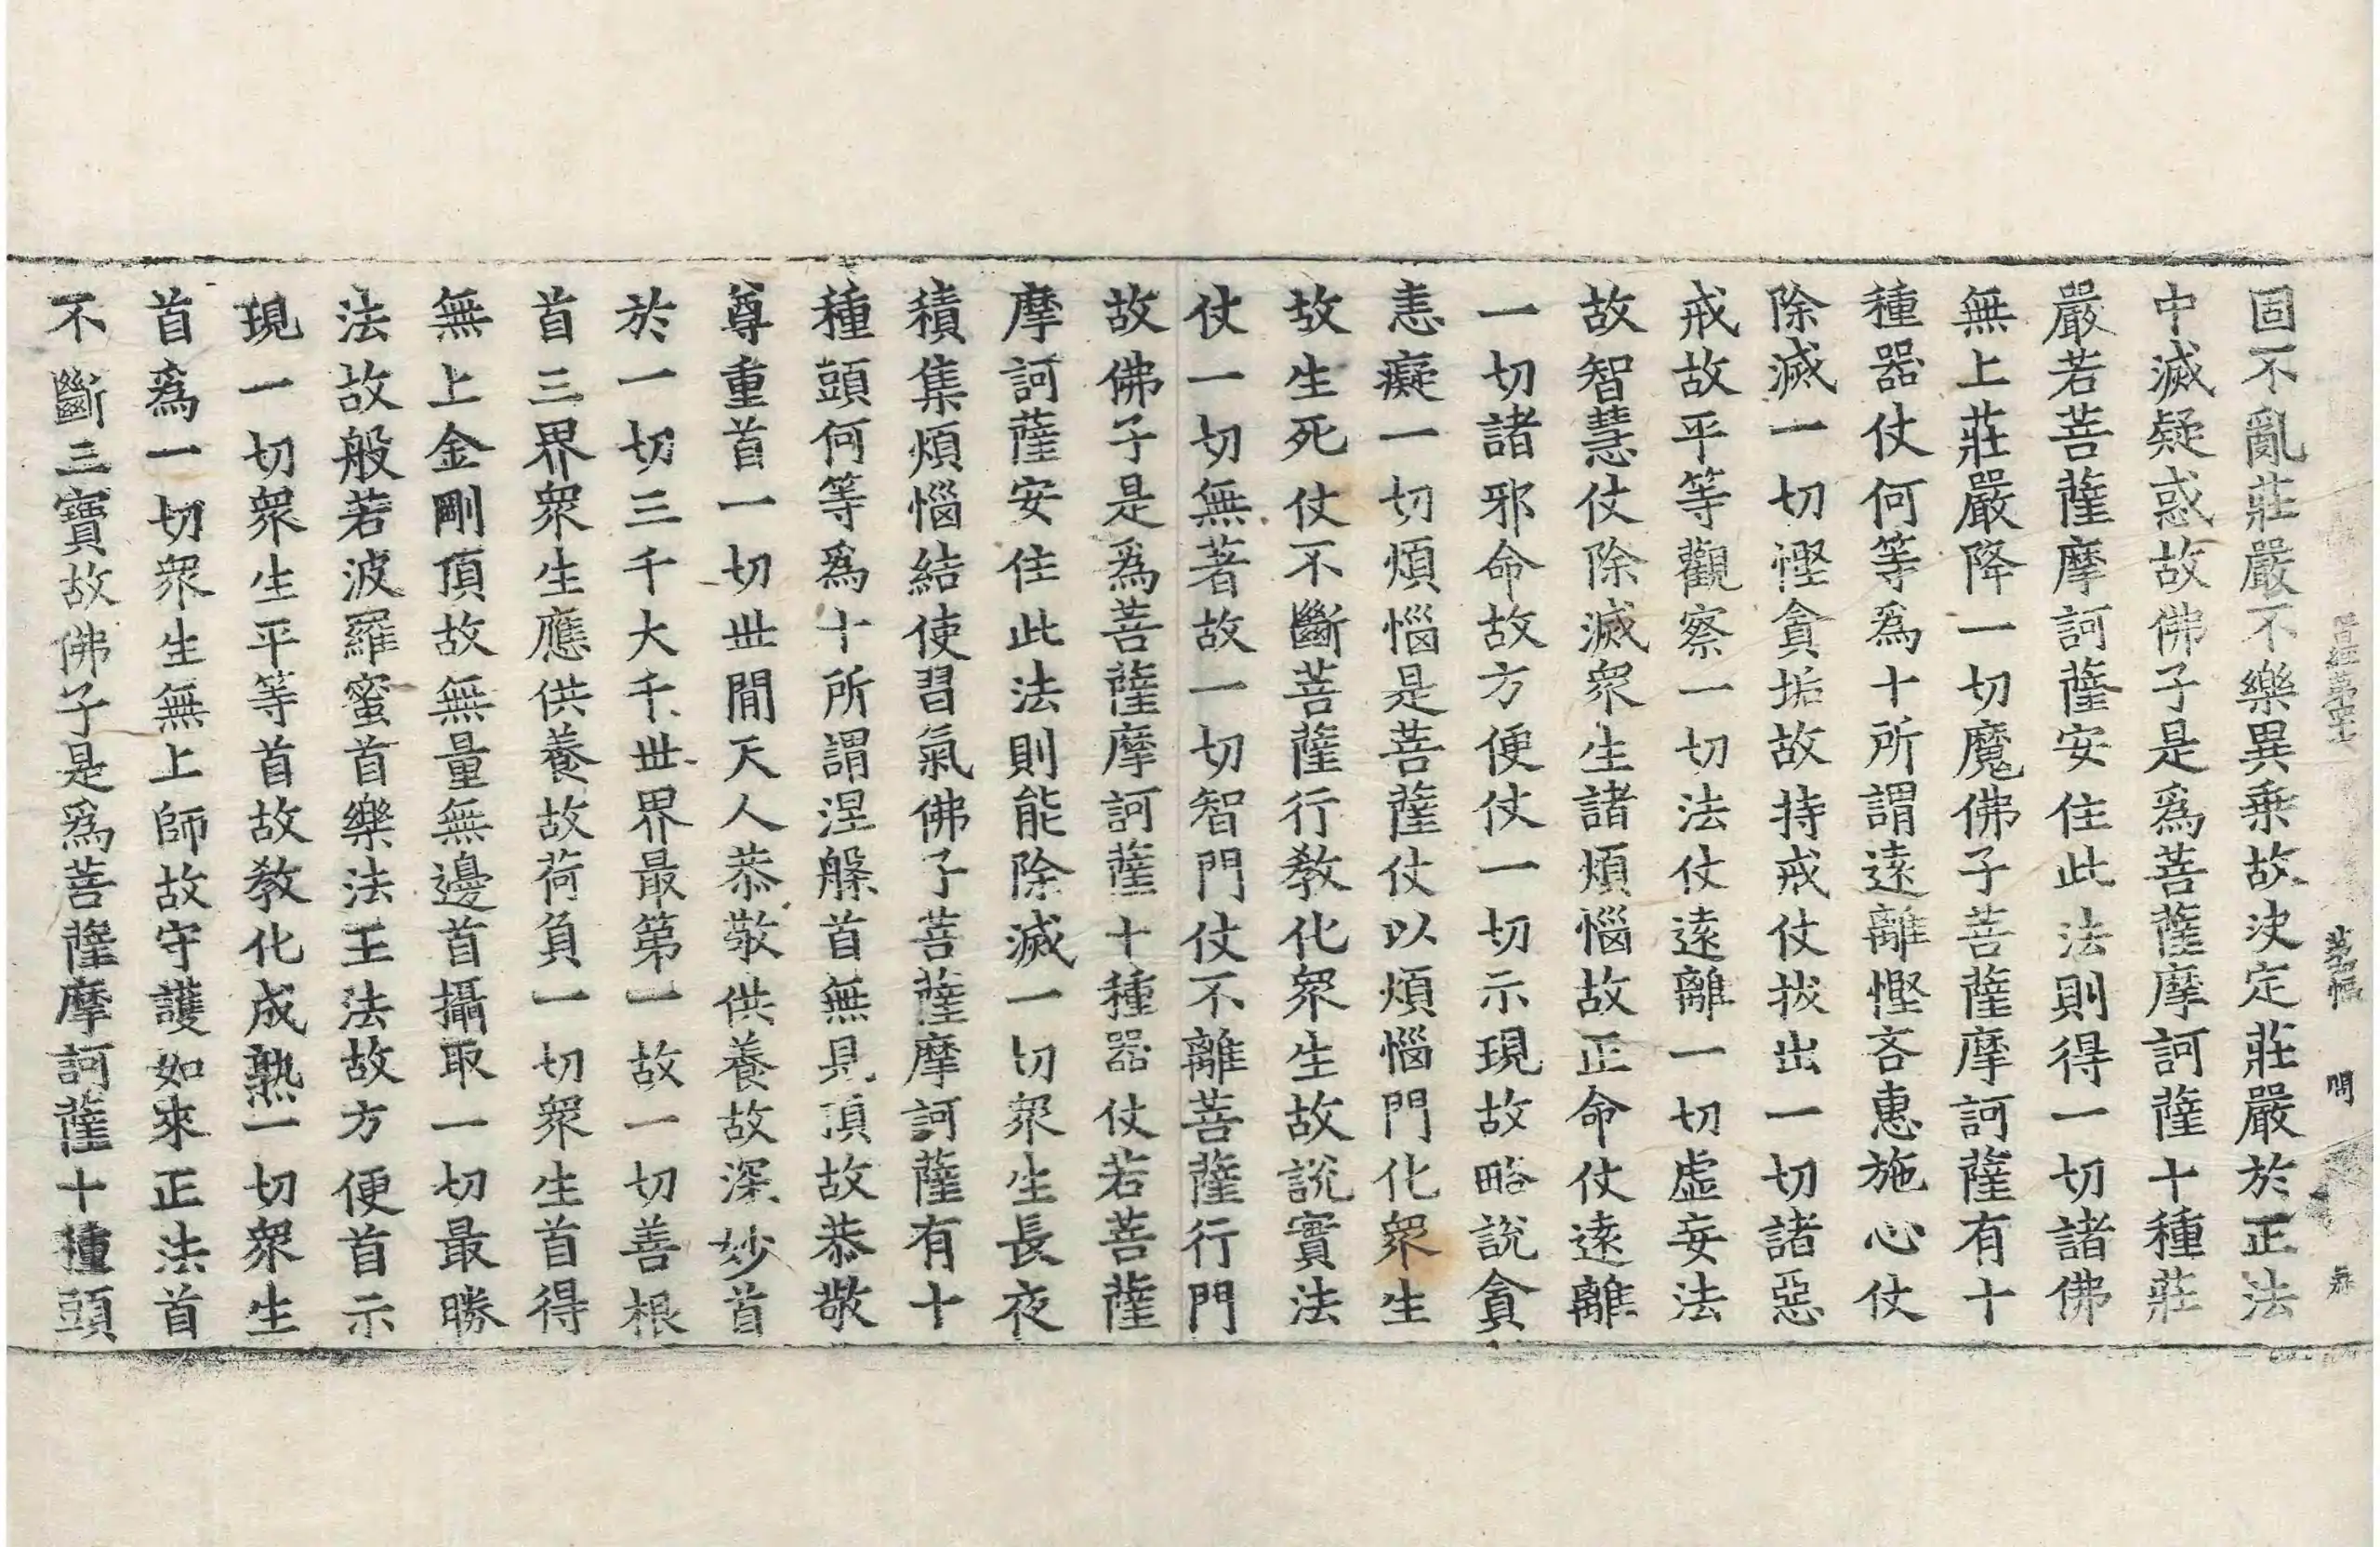 固不亂莊嚴不樂異乗故決定莊嚴於正法
中滅疑惑故佛子是爲菩薩摩訶薩十種莊
嚴若菩薩摩訶薩安住此法則得一切諸佛
無上莊嚴降一切魔佛子菩薩摩訶薩有十
種器仗何等爲十所謂遠離慳吝惠施心仗
除滅一切慳貪垢故持戒仗拔出一切諸惡
戒故平等觀察一切法仗遠離一切虛妄法
故智慧仗除滅衆生諸煩惱故正命仗遠離
一切諸邪命故方便仗一切示現故略說貪
恚癡一切煩惱是菩薩仗以煩惱門化衆生
故生死仗不斷菩薩行教化衆生故說實法
仗一切無著故一切智門仗不離菩薩行門
故佛子是爲菩薩摩訶薩十種器仗若菩薩
摩訶薩安住此法則能除滅一切衆生長夜
積集煩惱結使習氣佛子菩薩摩訶薩有十
種頭何等爲十所謂涅槃首無見頂故恭敬
尊重首一切世間天人恭敬供養故深妙首
於一切三千大千世界最第一故一切善根
首三界衆生應供養故荷負一切衆生首得
無上金剛頂故無量無邊首攝取一切最勝
法故般若波羅蜜首樂法王法故方便首示
現一切衆生平等首故教化成熟一切衆生
首爲一切衆生無上師故守護如來正法首
不斷三寶故佛子是爲菩薩摩訶薩十種頭